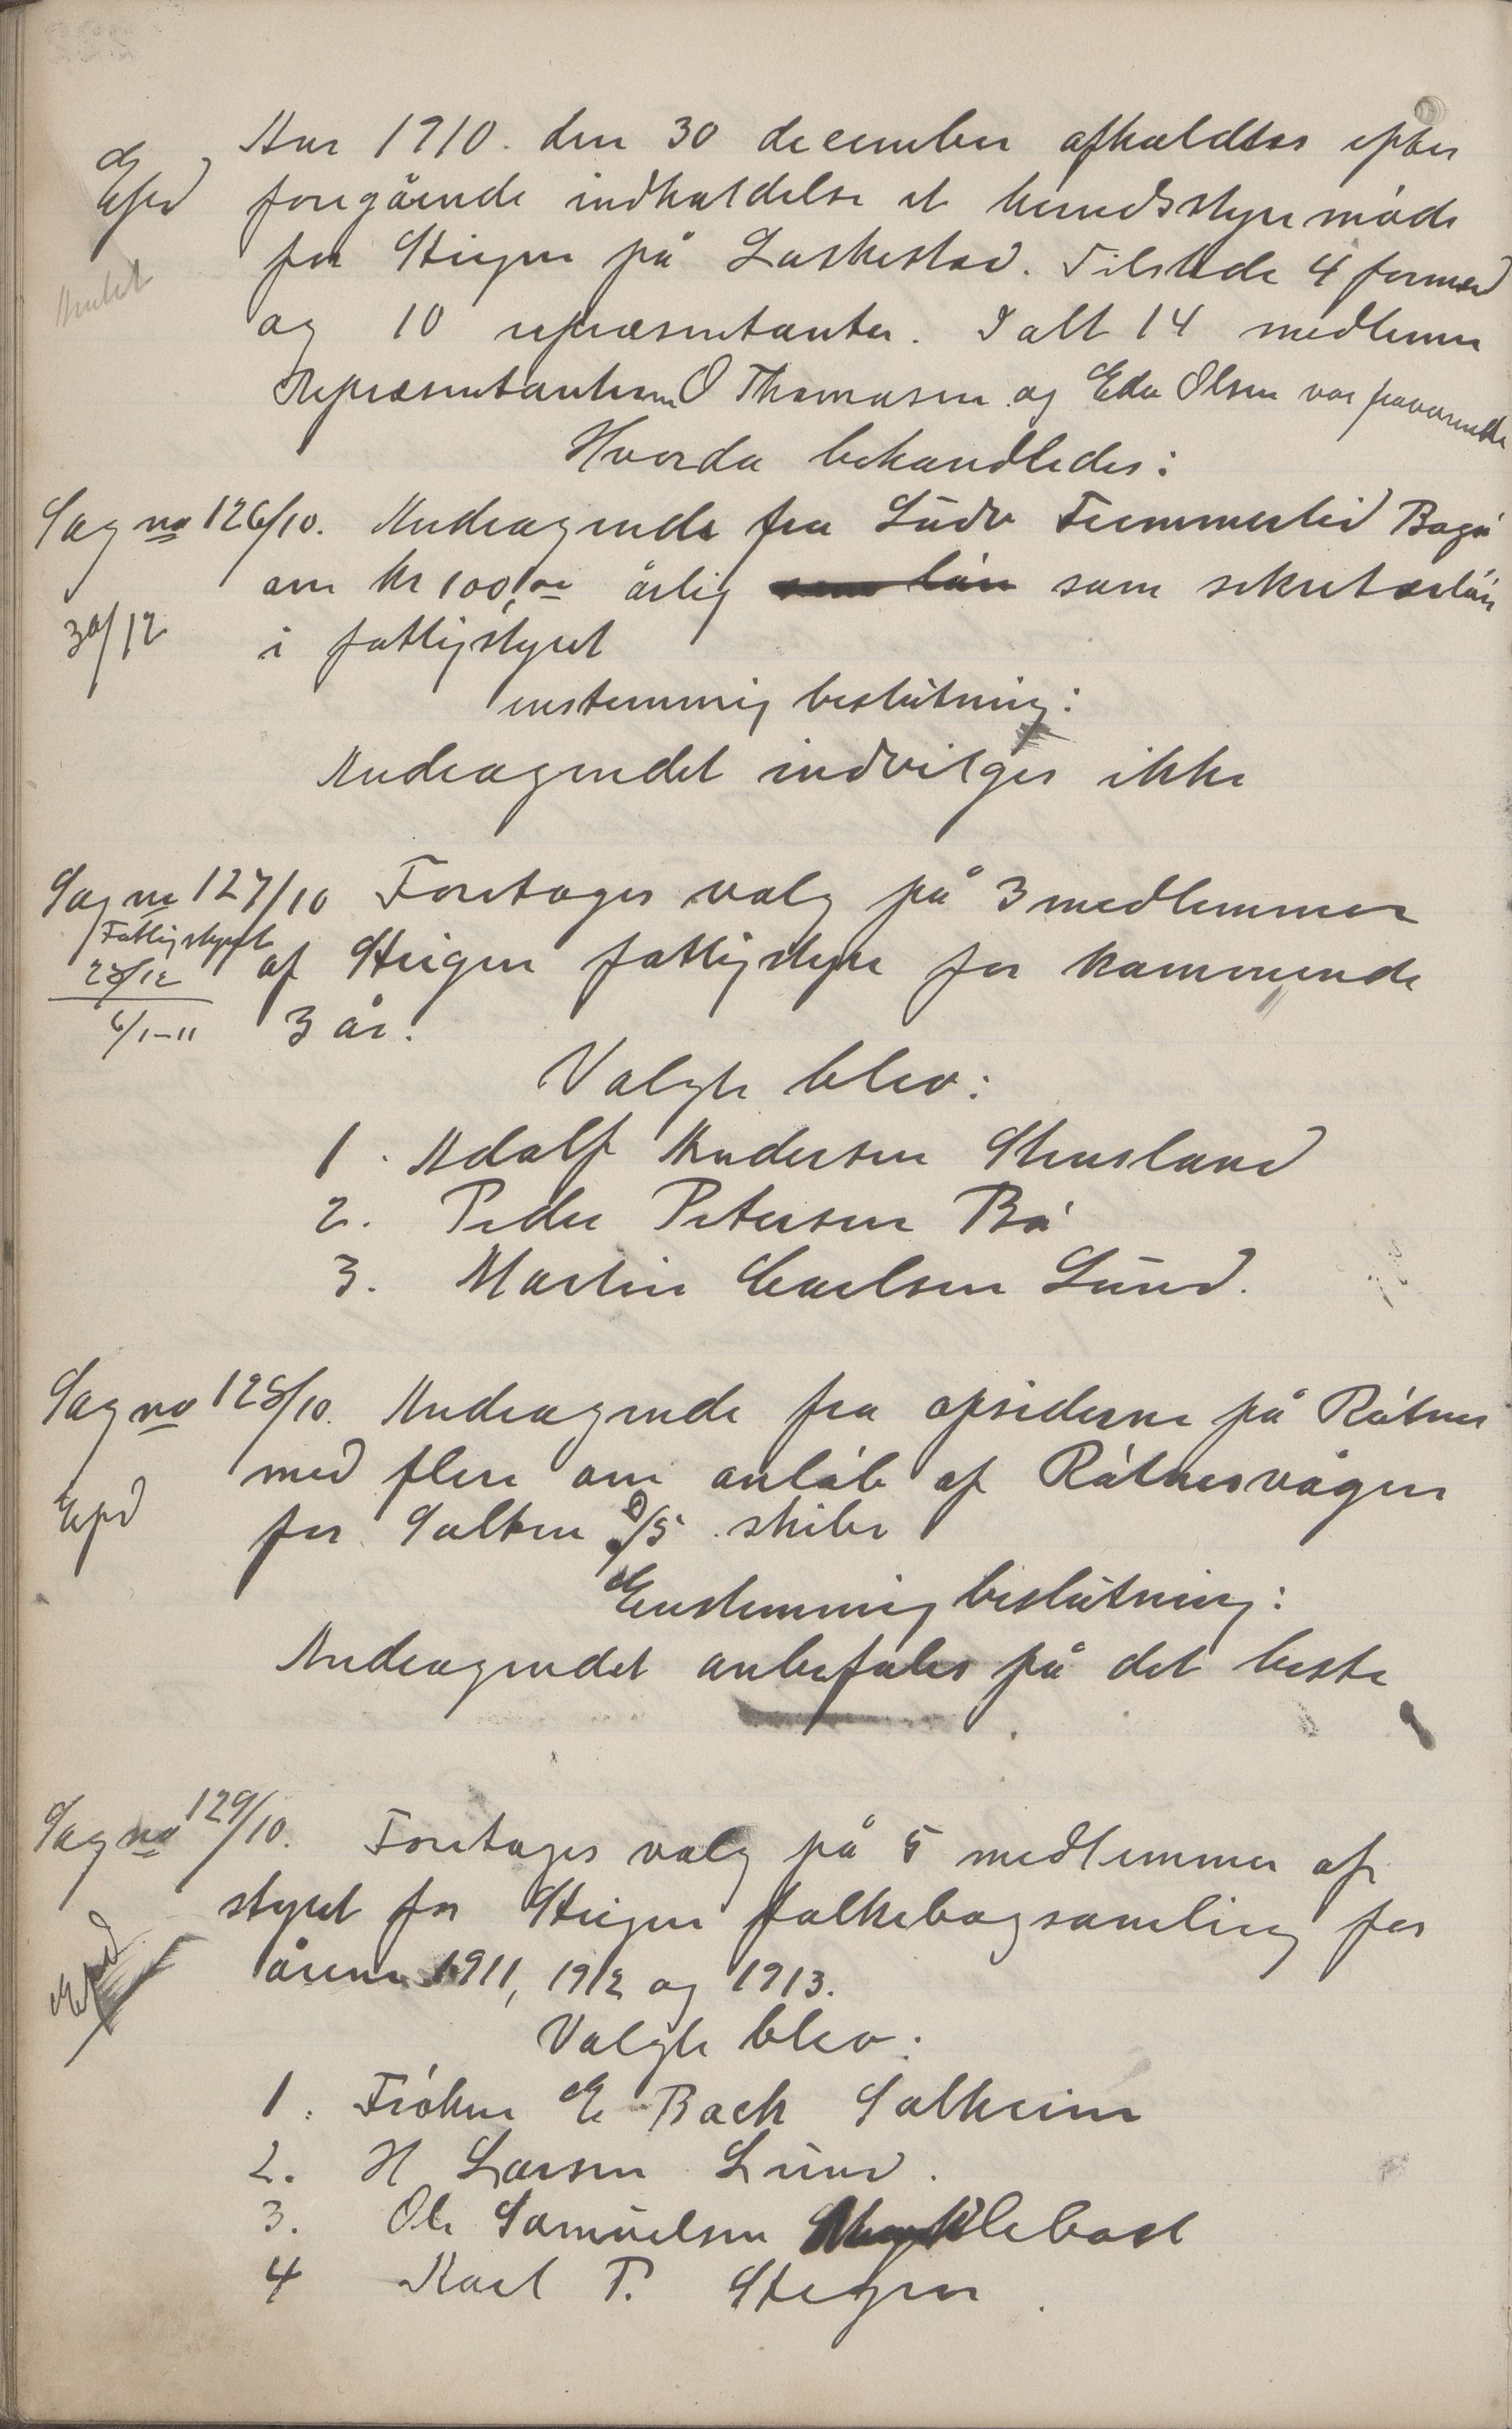 Aar 1910. den 30 december afholdtes efter
Efed foregående indkaldelse et herredsstyremøde
for Steigen på Laskestad. Tilstede 4 formænd
og 10 repræsentanter. I alt 14 medlemmer
Repræsentanterne O Thomasen og Edv Olsen var fraværende
Hvorda behandledes:
Sag no 126/10. Andragende fra Ludv Tømmerlid Bogø
om kr 100,00 årlig som løn som sekretærløn
30/12 i fattigstyret
enstemmig beslutning:
Andragendet indvilges ikke
Sag no 127/10 Foretoges valg på 3 medlemmer
Fattigstyret
28/12 af Steigen fattigstyre for kommende
6/1-11 3 år.
Valgte blev:
1. Adolf Andersen Stensland
2. Peder Petersen Bø
3. Martin Carlsen Lund.
Sag no 128/10. Andragende fra opsiderne på Røtnes
med flere om anløb af Røtnesvågen
Efed for Salten D/S skibe
Enstemmig beslutning:
Andragendet anbefales på det beste
Sag no 129/10. Foretoges valg på 5 medlemmer af
styret for Steigen folkebogsamling for
Efed årene 1911, 1912 og 1913.
Valgte blev:
1. Frøken E Back Solheim
2. H Larsen Lund.
3. Ole Samuelsen Myklebost
4 Karl T. Steigen